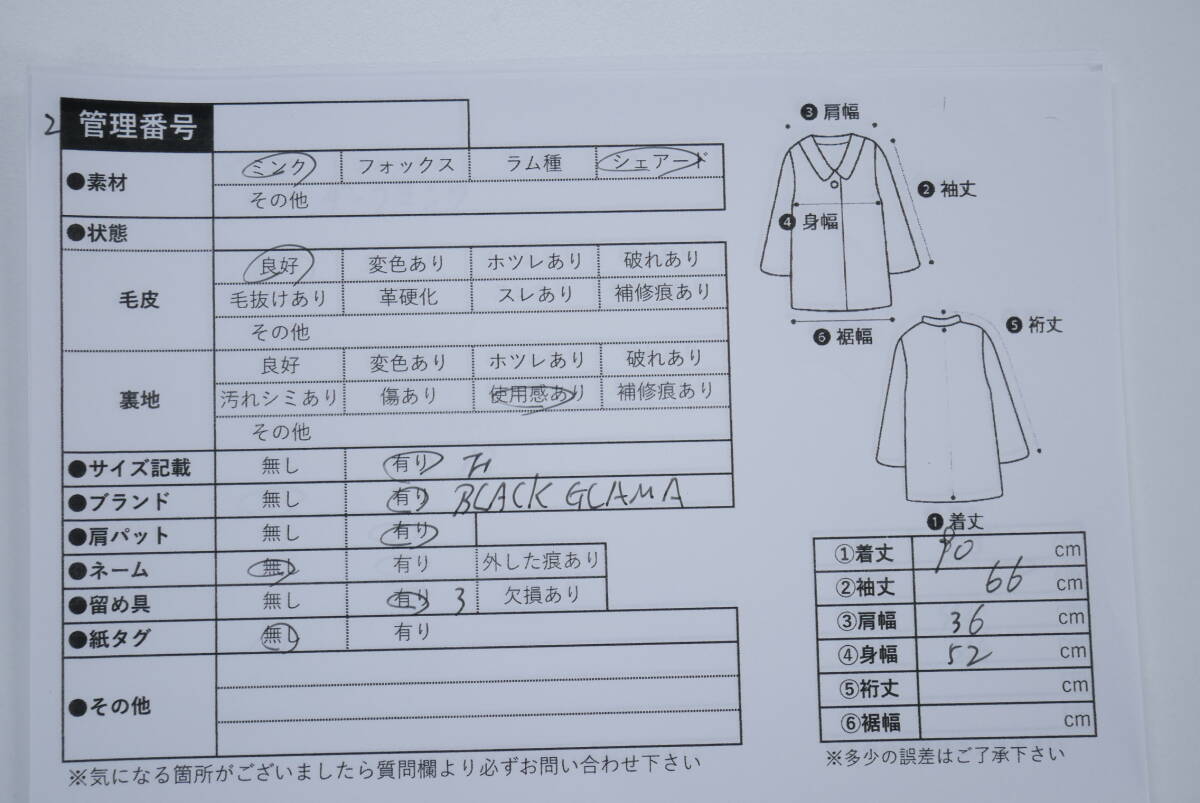 2 管理番号
●素材 ミンク フォックス ラム種 シェアード
その他
●状態
毛皮 良好 変色あり ホツレあり 破れあり
毛抜けあり 革硬化 スレあり 補修痕あり
その他
裏地 良好 変色あり ホツレあり 破れあり
汚れシミあり 傷あり 使用感あり 補修痕あり
その他
●サイズ記載 無し 有り
●ブランド 無し 有り BLACK GLAMA
●肩パット 無し 有り
●ネーム 無し 有り 外した痕あり
●留め具 無し 有り 3 欠損あり
●紙タグ 無し 有り
●その他
※気になる箇所がございましたら質問欄より必ずお問い合わせ下さい
❸ 肩幅
❷ 袖丈
❹ 身幅
❻ 裾幅
❺ 裄丈
❶ 着丈
①着丈 90 cm
②袖丈 66 cm
③肩幅 36 cm
④身幅 52 cm
⑤裄丈 cm
⑥裾幅 cm
※多少の誤差はご了承下さい